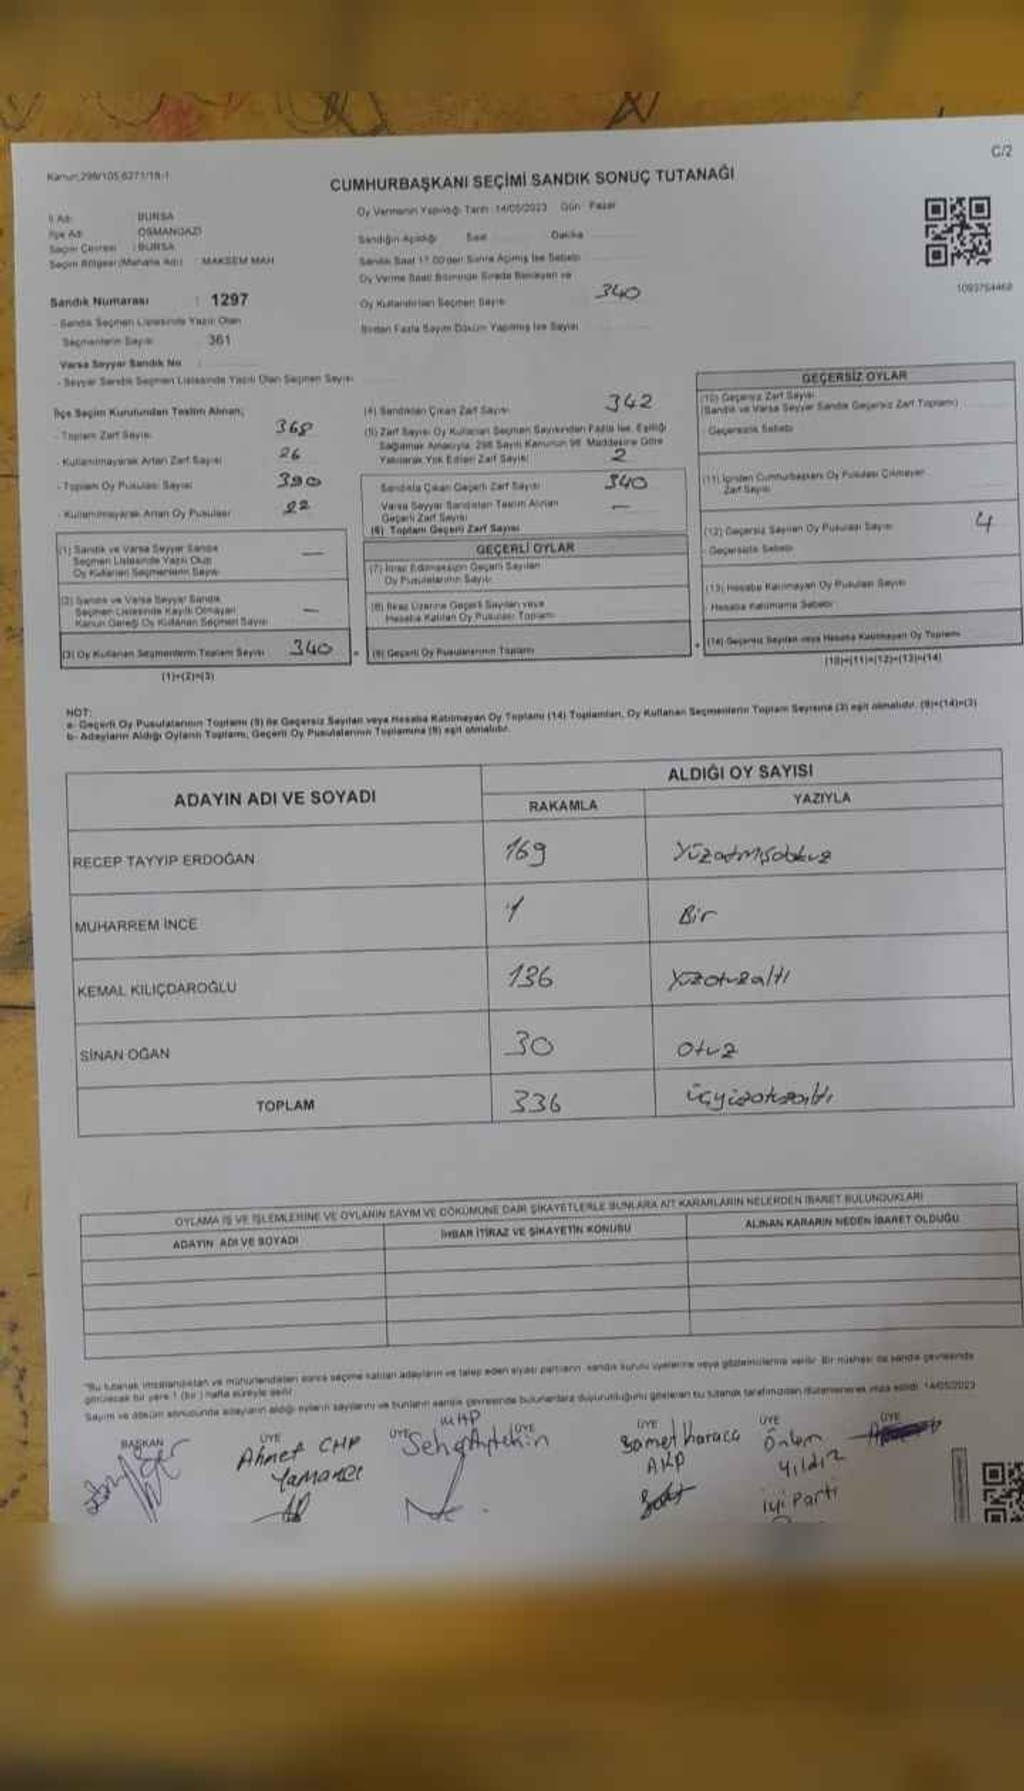 C/2
Kanun;298/105,6271/18-1
CUMHURBAŞKANI SEÇİMİ SANDIK SONUÇ TUTANAĞI
İl Adı : BURSA
İlçe Adı : OSMANGAZİ
Seçim Çevresi : BURSA
Seçim Bölgesi (Mahalle Adı) : MAKSEM MAH
Oy Vermenin Yapıldığı Tarih :14/05/2023 Gün : Pazar
Sandığın Açıldığı Saat Dakika
Sandık Saat 17.00'den Sonra Açılmış İse Sebebi
Oy Verme Saati Bitiminde Sırada Bekleyen ve
Oy Kullandırılan Seçmen Sayısı 340
Birden Fazla Sayım Döküm Yapılmış İse Sayısı
1093764468
Sandık Numarası : 1297
- Sandık Seçmen Listesinde Yazılı Olan
Seçmenlerin Sayısı 361
Varsa Seyyar Sandık No
- Seyyar Sandık Seçmen Listesinde Yazılı Olan Seçmen Sayısı
İlçe Seçim Kurulundan Teslim Alınan;
- Toplam Zarf Sayısı 368
- Kullanılmayarak Artan Zarf Sayısı 26
- Toplam Oy Pusulası Sayısı 390
- Kullanılmayarak Artan Oy Pusulası 22
(1) Sandık ve Varsa Seyyar Sandık
Seçmen Listesinde Yazılı Olup
Oy Kullanan Seçmenlerin Sayısı —
(2) Sandık ve Varsa Seyyar Sandık
Seçmen Listesinde Kayıtlı Olmayan
Kanun Gereği Oy Kullanan Seçmen Sayısı —
(3) Oy Kullanan Seçmenlerin Toplam Sayısı 340
(1)+(2)=(3)
(4) Sandıktan Çıkan Zarf Sayısı 342
(5) Zarf Sayısı Oy Kullanan Seçmen Sayısından Fazla İse, Eşitliği
Sağlamak Amacıyla, 298 Sayılı Kanunun 98. Maddesine Göre
Yakılarak Yok Edilen Zarf Sayısı 2
Sandıkta Çıkan Geçerli Zarf Sayısı 340
Varsa Seyyar Sandıktan Teslim Alınan
Geçerli Zarf Sayısı —
(6) Toplam Geçerli Zarf Sayısı
GEÇERLİ OYLAR
(7) İtiraz Edilmeksizin Geçerli Sayılan
Oy Pusulalarının Sayısı
(8) İtiraz Üzerine Geçerli Sayılan veya
Hesaba Katılan Oy Pusulası Toplamı
= (9) Geçerli Oy Pusulalarının Toplamı
GEÇERSİZ OYLAR
(10) Geçersiz Zarf Sayısı
(Sandık ve Varsa Seyyar Sandık Geçersiz Zarf Toplamı)
Geçersizlik Sebebi
(11) İçinden Cumhurbaşkanı Oy Pusulası Çıkmayan
Zarf Sayısı
(12) Geçersiz Sayılan Oy Pusulası Sayısı 4
- Geçersizlik Sebebi
(13) Hesaba Katılmayan Oy Pusulası Sayısı
- Hesaba Katılmama Sebebi
+ (14) Geçersiz Sayılan veya Hesaba Katılmayan Oy Toplamı
(10)+(11)+(12)+(13)=(14)
NOT:
a- Geçerli Oy Pusulalarının Toplamı (9) ile Geçersiz Sayılan veya Hesaba Katılmayan Oy Toplamı (14) Toplamları, Oy Kullanan Seçmenlerin Toplam Sayısına (3) eşit olmalıdır. (9)+(14)=(3)
b- Adayların Aldığı Oyların Toplamı, Geçerli Oy Pusulalarının Toplamına (9) eşit olmalıdır.
ADAYIN ADI VE SOYADI ALDIĞI OY SAYISI
RAKAMLA YAZIYLA
RECEP TAYYIP ERDOĞAN 169 Yüzatmışdokuz
MUHARREM İNCE 1 Bir
KEMAL KILIÇDAROĞLU 136 Yüzotuzaltı
SİNAN OĞAN 30 Otuz
TOPLAM 336 üçyüzotuzaltı
OYLAMA İŞ VE İŞLEMLERİNE VE OYLARIN SAYIM VE DÖKÜMÜNE DAİR ŞİKAYETLERLE BUNLARA AİT KARARLARIN NELERDEN İBARET BULUNDUKLARI
ADAYIN ADI VE SOYADI İHBAR İTİRAZ VE ŞİKAYETİN KONUSU ALINAN KARARIN NEDEN İBARET OLDUĞU
"Bu tutanak imzalandıktan ve mühürlendikten sonra seçime katılan adayların ve talep eden siyasi partilerin sandık kurulu üyelerine veya gözlemcilerine verilir. Bir nüshası da sandık çevresinde
görülecek bir yere 1 (bir) hafta süreyle asılır
Sayım ve döküm sonucunda adayların aldığı oyların sayılarını ve bunların sandık çevresinde bulunanlara duyurulduğunu gösteren bu tutanak tarafımızdan düzenlenerek imza edildi. 14/05/2023
BAŞKAN ÜYE ÜYE ÜYE ÜYE ÜYE ÜYE
Ahmet CHP
Yamaner
MHP
Samet Karaca
AKP
Önlem
Yıldız
iyi Parti